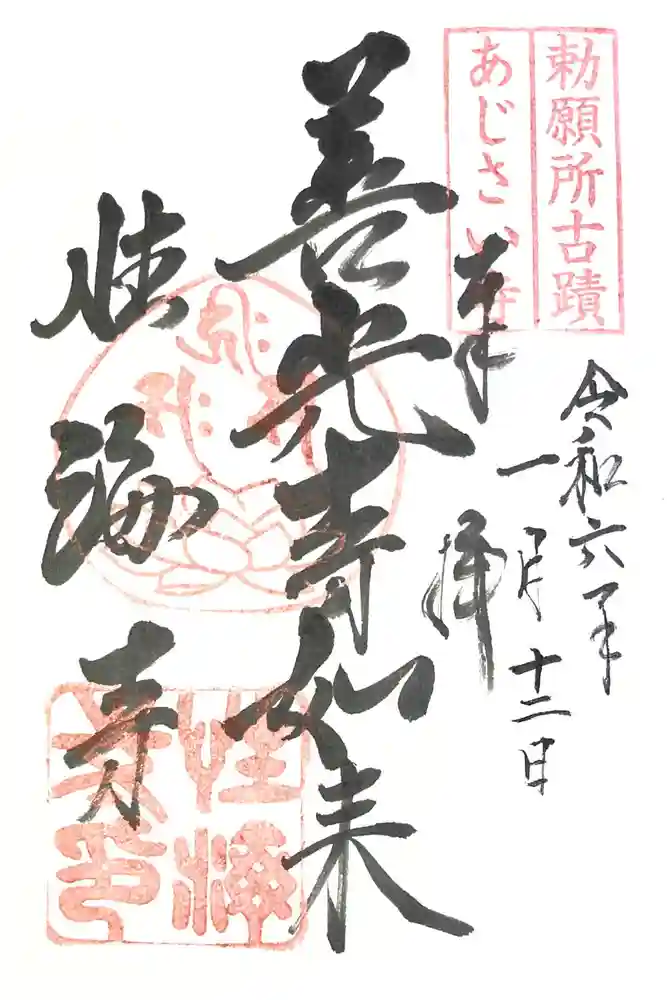 勅願所古蹟
あじさい寺
奉拝
令和六年
一月十二日
善光寺如来
性海寺
性海
寺印